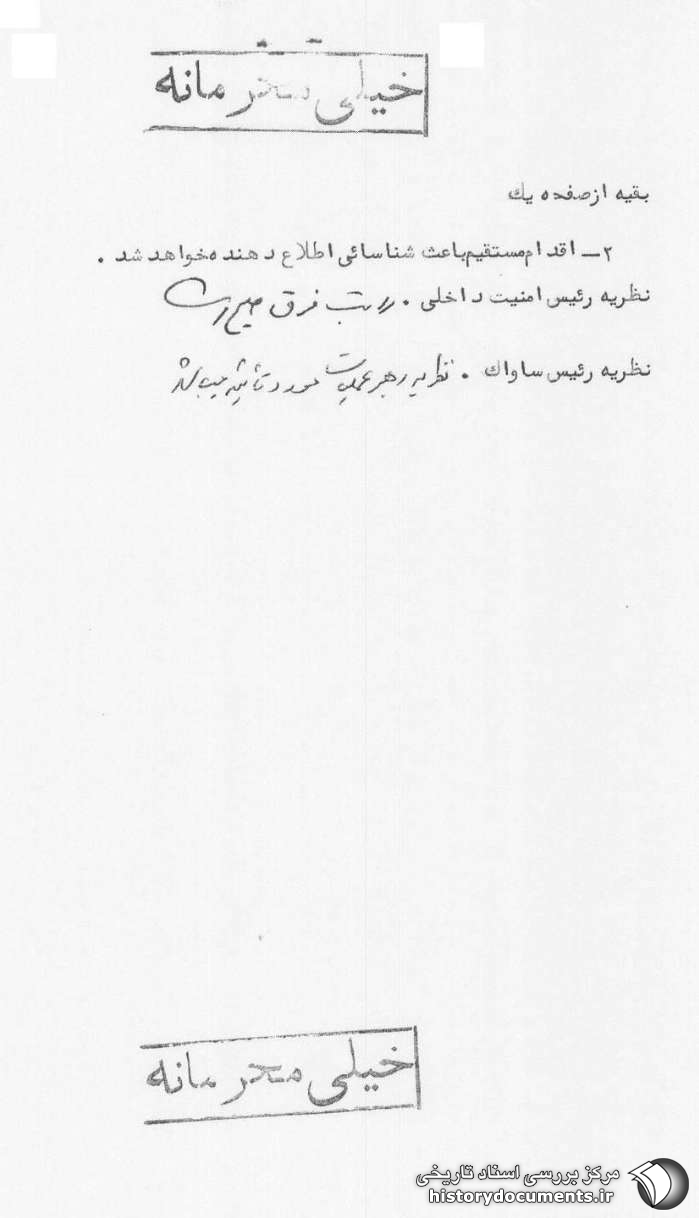 خیلی محرمانه
بقیه از صفحه یك
۲ـ اقدام مستقیم باعث شناسائی اطلاع دهنده خواهد شد .
نظریه رئیس امنیت داخلی . مراتب فوق صحیح است
نظریه رئیس ساواك . نظریه رهبر عملیات مورد تأیید میباشد
خیلی محرمانه
مرکز بررسی اسناد تاریخی
historydocuments.ir